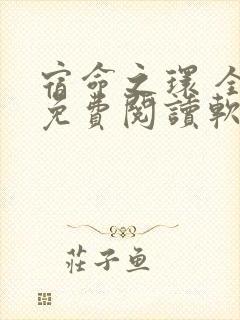 宿命之環 全
免費閱讀軟
莊子魚